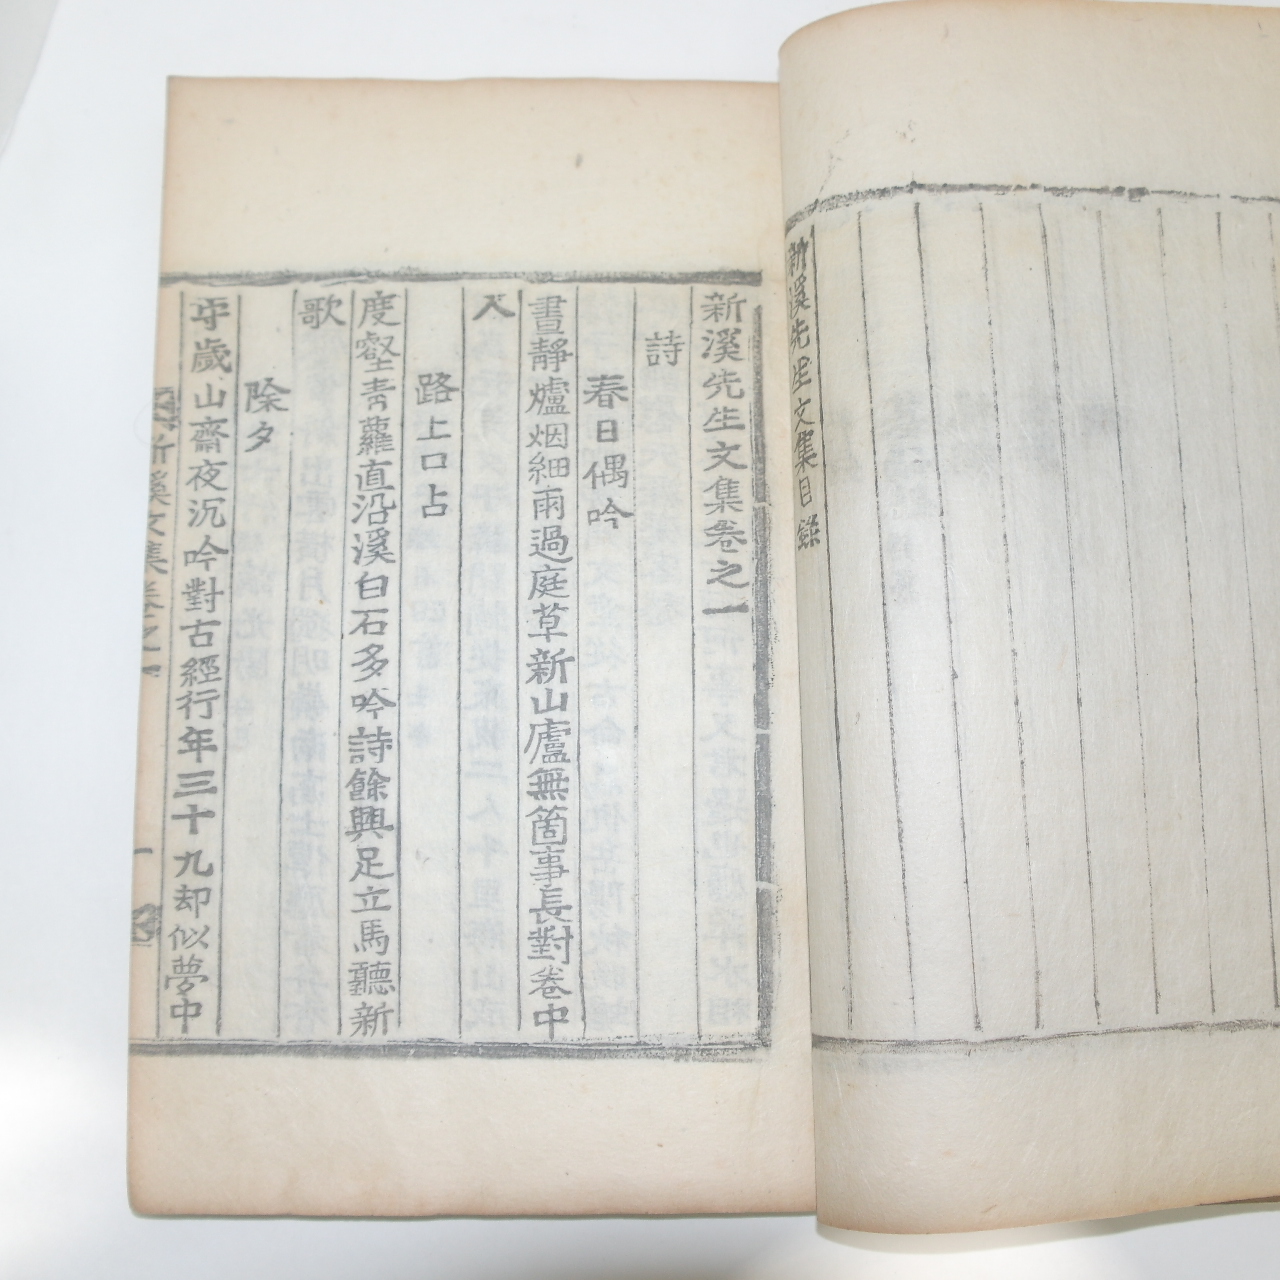 新溪先生文集目錄
新溪先生文集卷之一
詩
春日偶吟
晝靜爐烟細雨過庭草新山廬無箇事長對卷中
人
路上口占
度壑靑蘿直沿溪白石多吟詩餘興足立馬聽新
歌
除夕
守歲山齋夜沉吟對古經行年三十九却似夢中
新溪文集卷之一